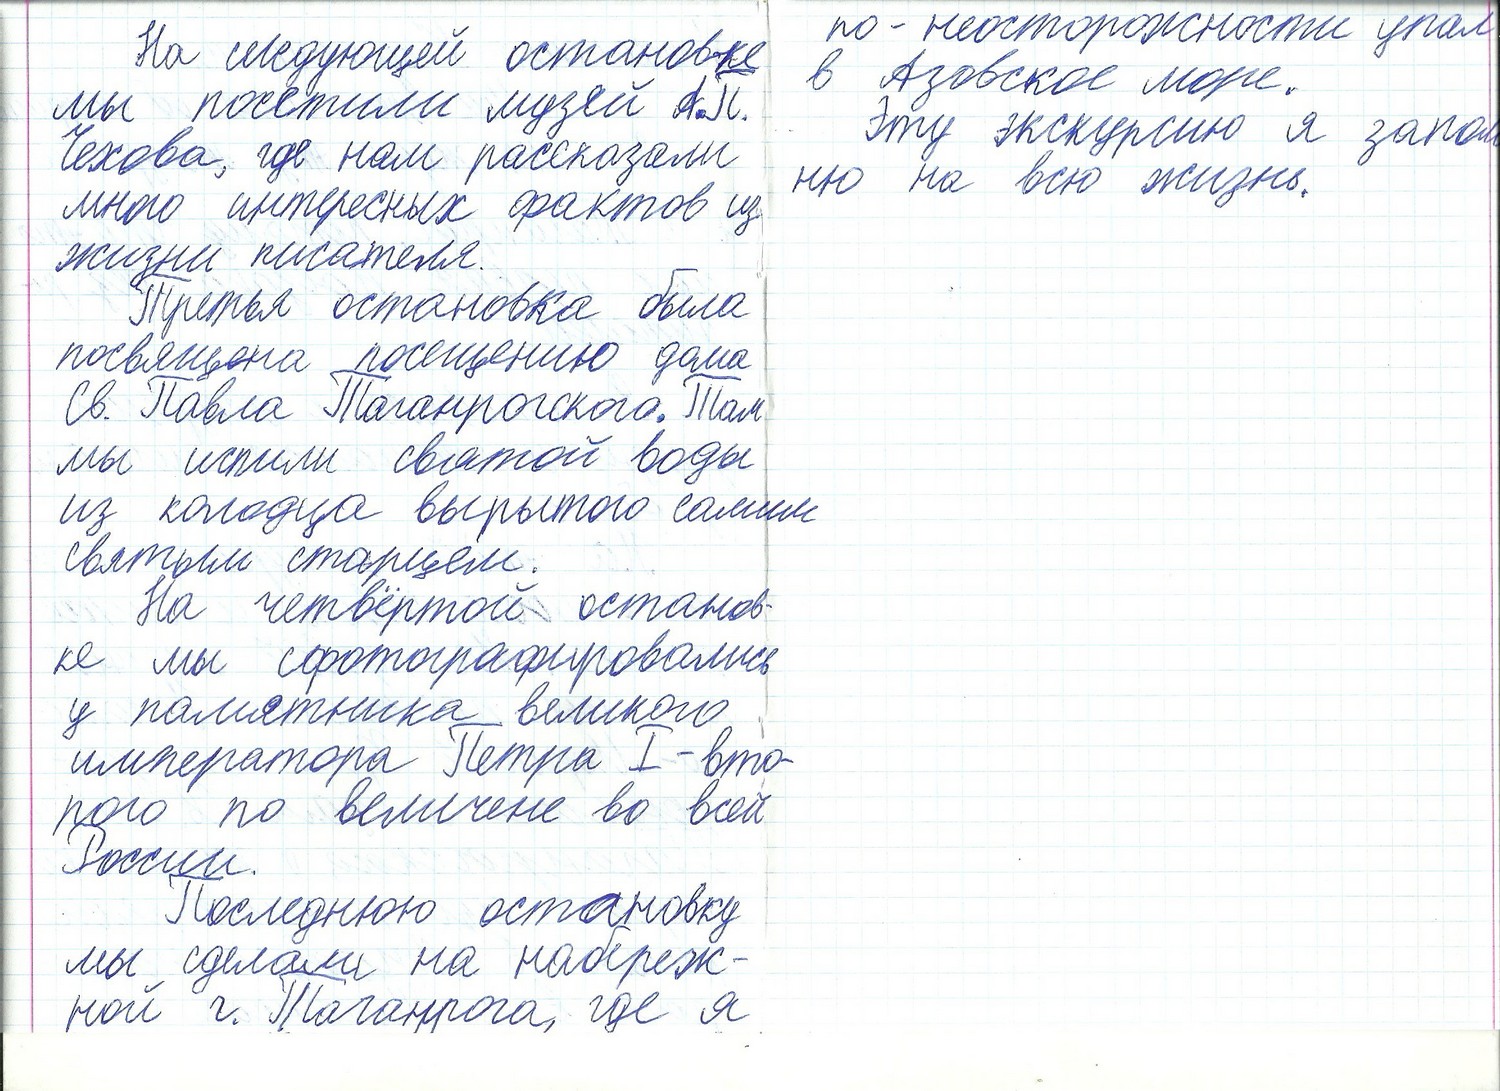 На следующей остановке
мы посетили музей А.П.
Чехова, где нам рассказали
много интересных фактов из
жизни писателя.
Третья остановка была
посвящена посещению дома
Св. Павла Таганрогского. Там
мы испили святой воды
из колодца вырытого самим
святым старцем.
На четвёртой останов-
ке мы сфотографировались
у памятника великого
императора Петра I - вто-
рого по величене во всей
России.
Последнюю остановку
мы сделали на набереж-
ной г. Таганрога, где я
по-неосторожности упал
в Азовское море.
Эту экскурсию я запом
ню на всю жизнь.